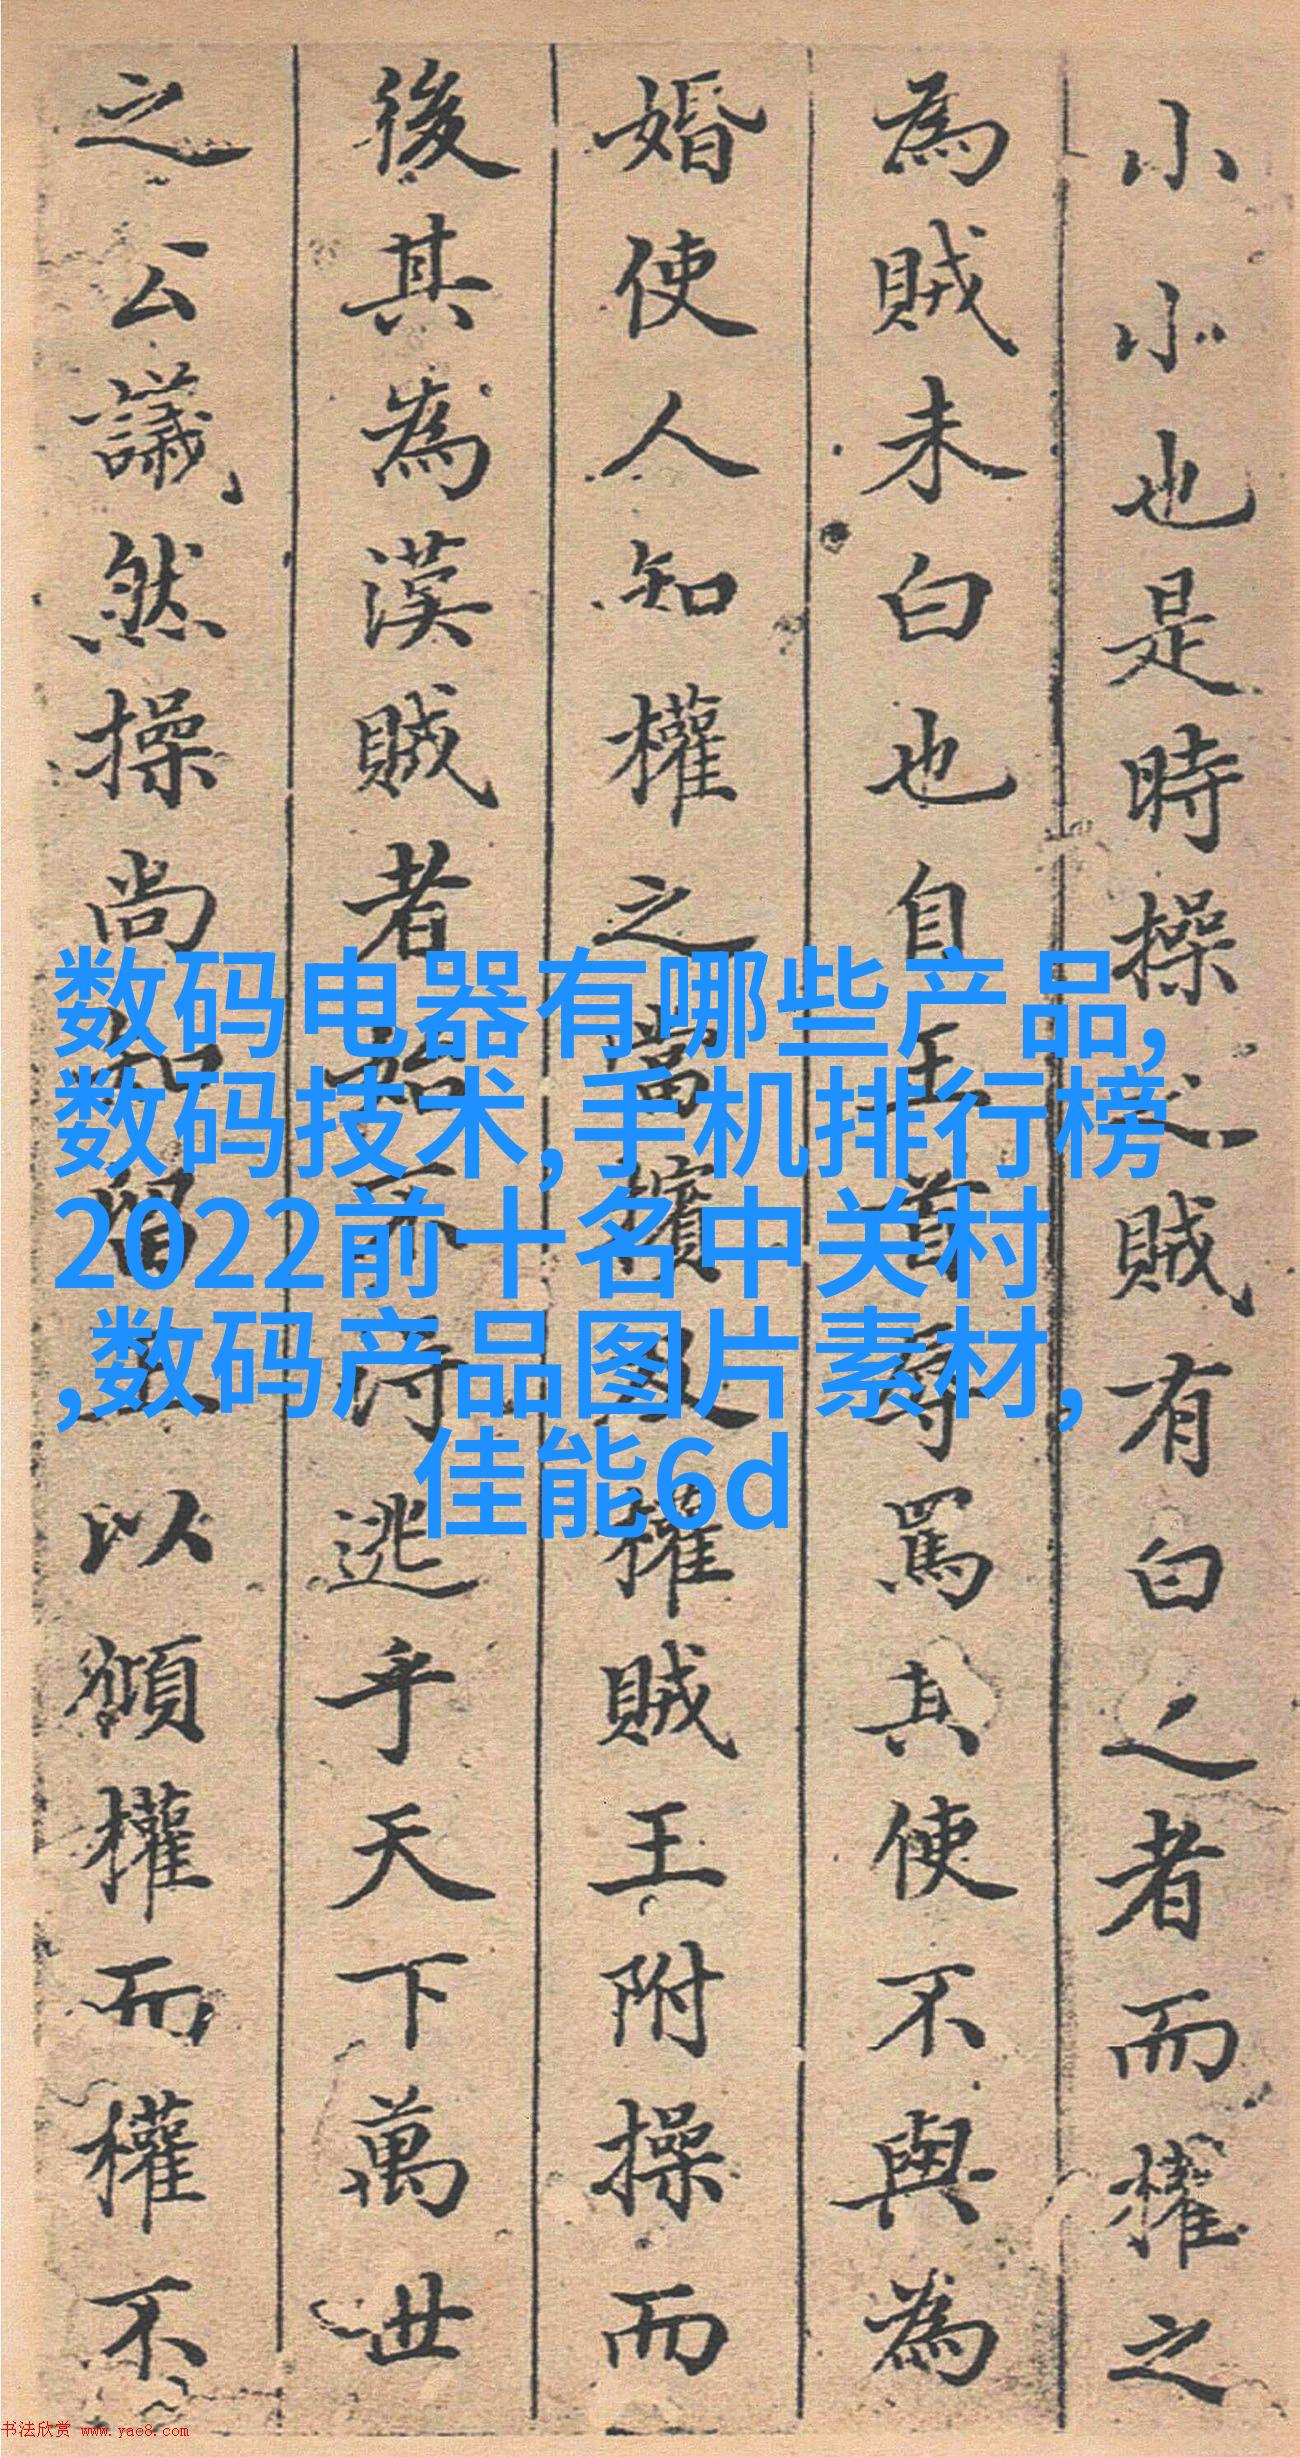 小小也是時操之賊有白之者而權之
為賊未白也自王首辱罵其使不與為
婚使人知權之當擯及權賊王附操而
後其為漢賊者始不得逃乎天下萬世
之公議然操尚知以權而權不
数码电器有哪些产品,
数码技术,手机排行榜
2022前十名中关村
,数码产品图片素材,
佳能6d
书法欣赏 www.yac8.com